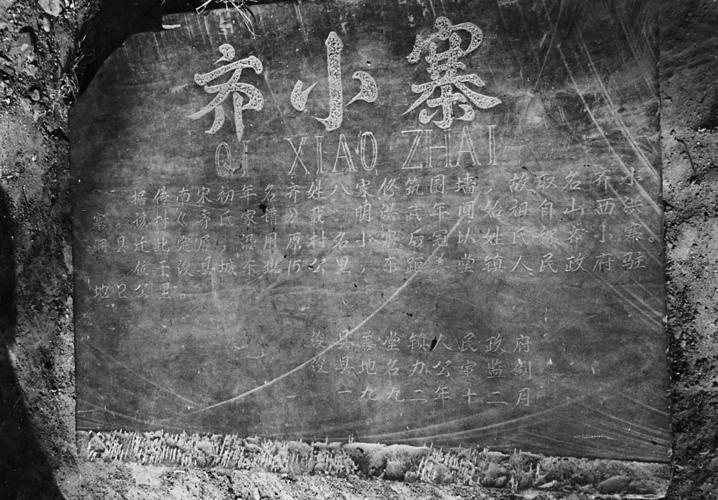 齐小寨
QI XIAO ZHAI
据传南宋初年名齐姓八家修筑围墙,故取名齐小
寨。该村《齐氏家谱》载:明洪武年间始祖自山西洪
洞县迁此定居,沿用原村名小寨,后冠以姓氏称齐小寨。
位于浚县城东北15公里,东距善堂镇人民政府驻
地 公里。
浚县善堂镇人民政府
浚县地名办公室监制
一九九二年十二月